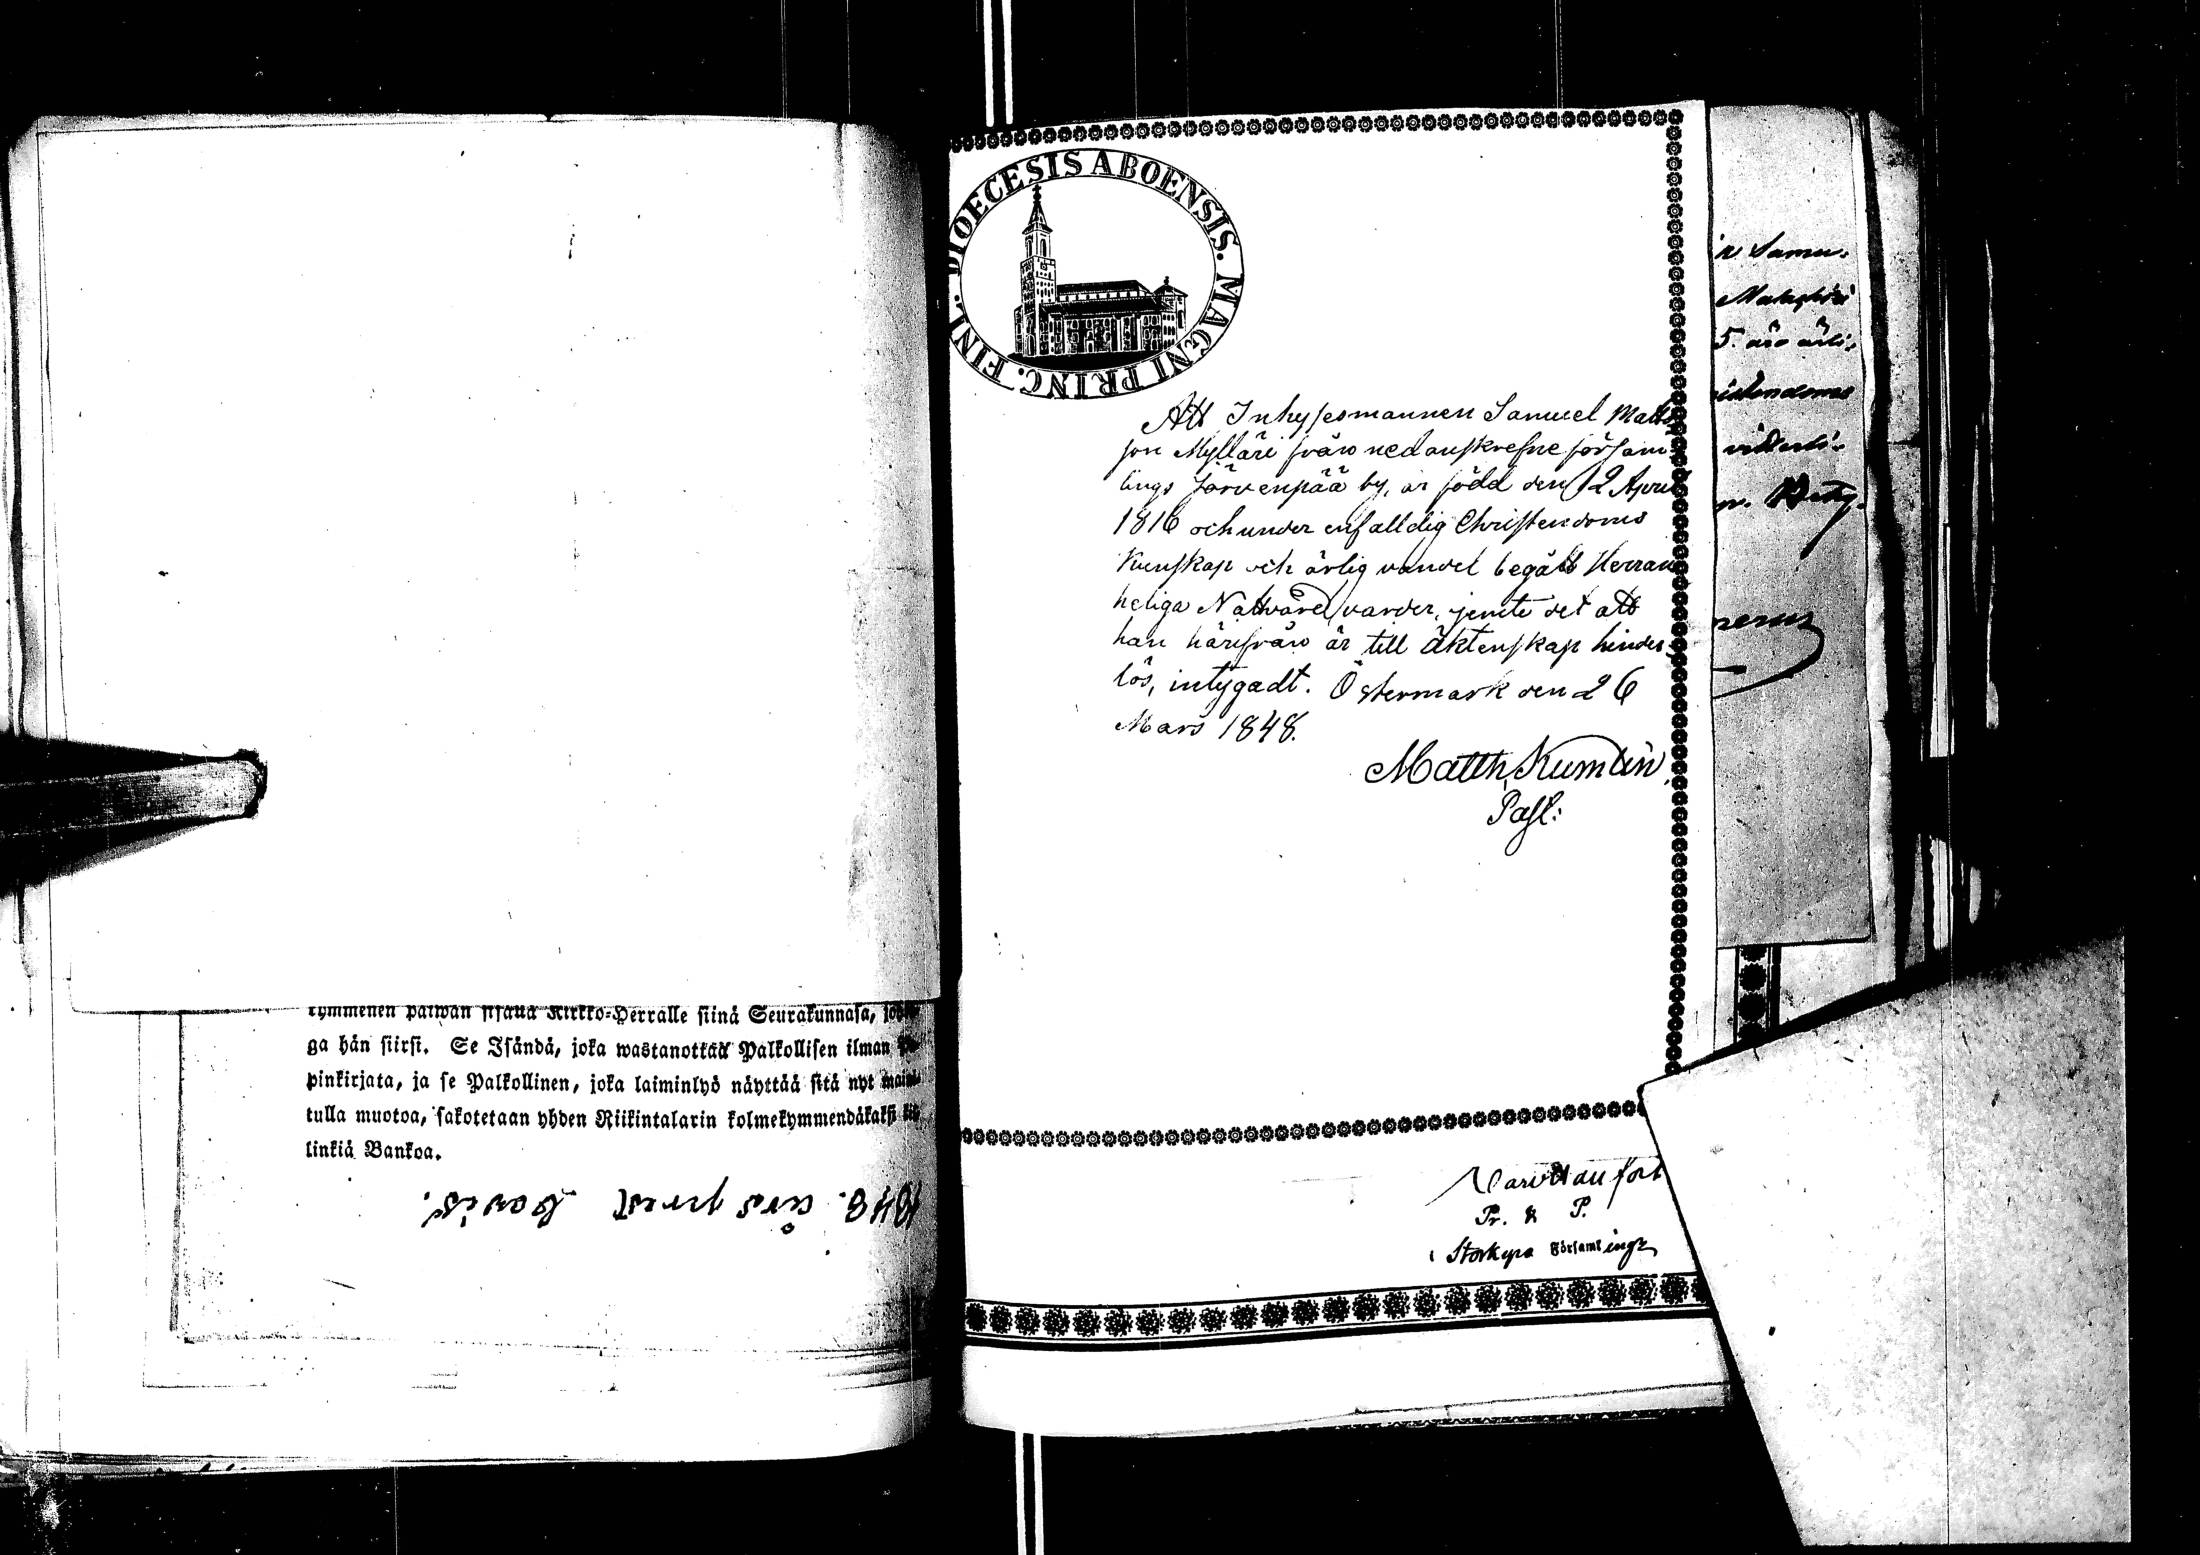 tymmenen päiwän sisällä Kirkko-Herralle siinä Seurakunnasa,
ga hän siirsi. Se Isändä, joka wastanottaa Palkollisen ilman
pinkirjata, ja se Palkollinen, joka laiminlyö näyttää sitä nyt
tulla muotoa, sakotetaan yhden Riikintalarin kolmekymmendäkaksi
linkiä Bankoa.
1848. års prest bevis.
DIOECESIS ABOENSIS. MAGNI PRINC. FINL.
Att Inhysesmannen Samuel Matts
son Mylläri från nedanskrefne församl
lings Järvenpää by, är född den 12 April
1816 och under enfalldig Christendoms
Kunskap och ärlig vandel begått Herrans
heliga Nattvard, jemte det att
han härifrån är till äktenskap hinder
lös, intygadt. Östermark den 26
Mars 1848.
Matth Kumlin
Past:
Pr. & P.
i Storkyro Församlings
n Samu-
5. äro ärli-
istendoms